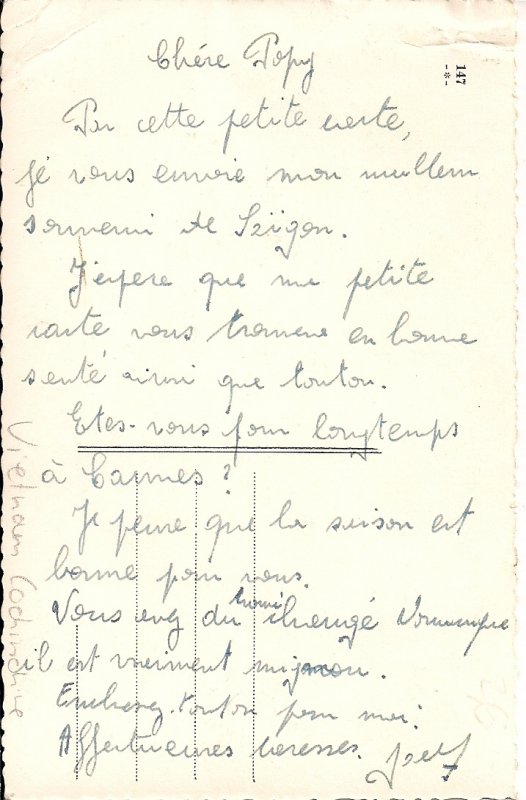 Chére Popy
147
-*-
Par cette petite carte,
je vous envoie mon meilleur
souvenir de Saïgon.
J'espere que ma petite
carte vous trouvera en bonne
santé ainsi que tonton.
Etes-vous pour longtemps
à Cannes ?
Je pense que la saison est
bonne pour vous.
Vous avez du trouvé changé
il est vraiment mignon.
Embrassez tonton pour moi.
Affectueuses caresses.
Vietnam Cochinchine